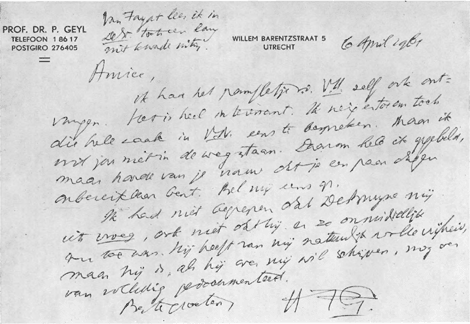 PROF. DR. P. GEYL
TELEFOON 18617
POSTGIRO 276405
lees ik in
WILLEM BARENTZSTRAAT 5
UTRECHT
6 April 1961
Amice,
Ik had het pamfletje v. V.H. zelf ook ont-
vangen. Het is heel interessant. Ik neig ertoe toch
die hele zaak in V.N. eens te bespreken. Maar ik
wil jou niet in de weg staan. Daarom heb ik gebeld,
maar hoorde van je vrouw dat je een paar dagen
onbereikbaar bent. Bel mij eens op.
Ik had niet begrepen dat mij
uit vroeg, ook niet dat hij er zo onmiddellijk
toe was. Hij heeft van mij natuurlijk volle vrijheid,
maar hij is, als hij over mij wil schrijven, nog
van volledig gedocumenteerd.
Beste groeten,